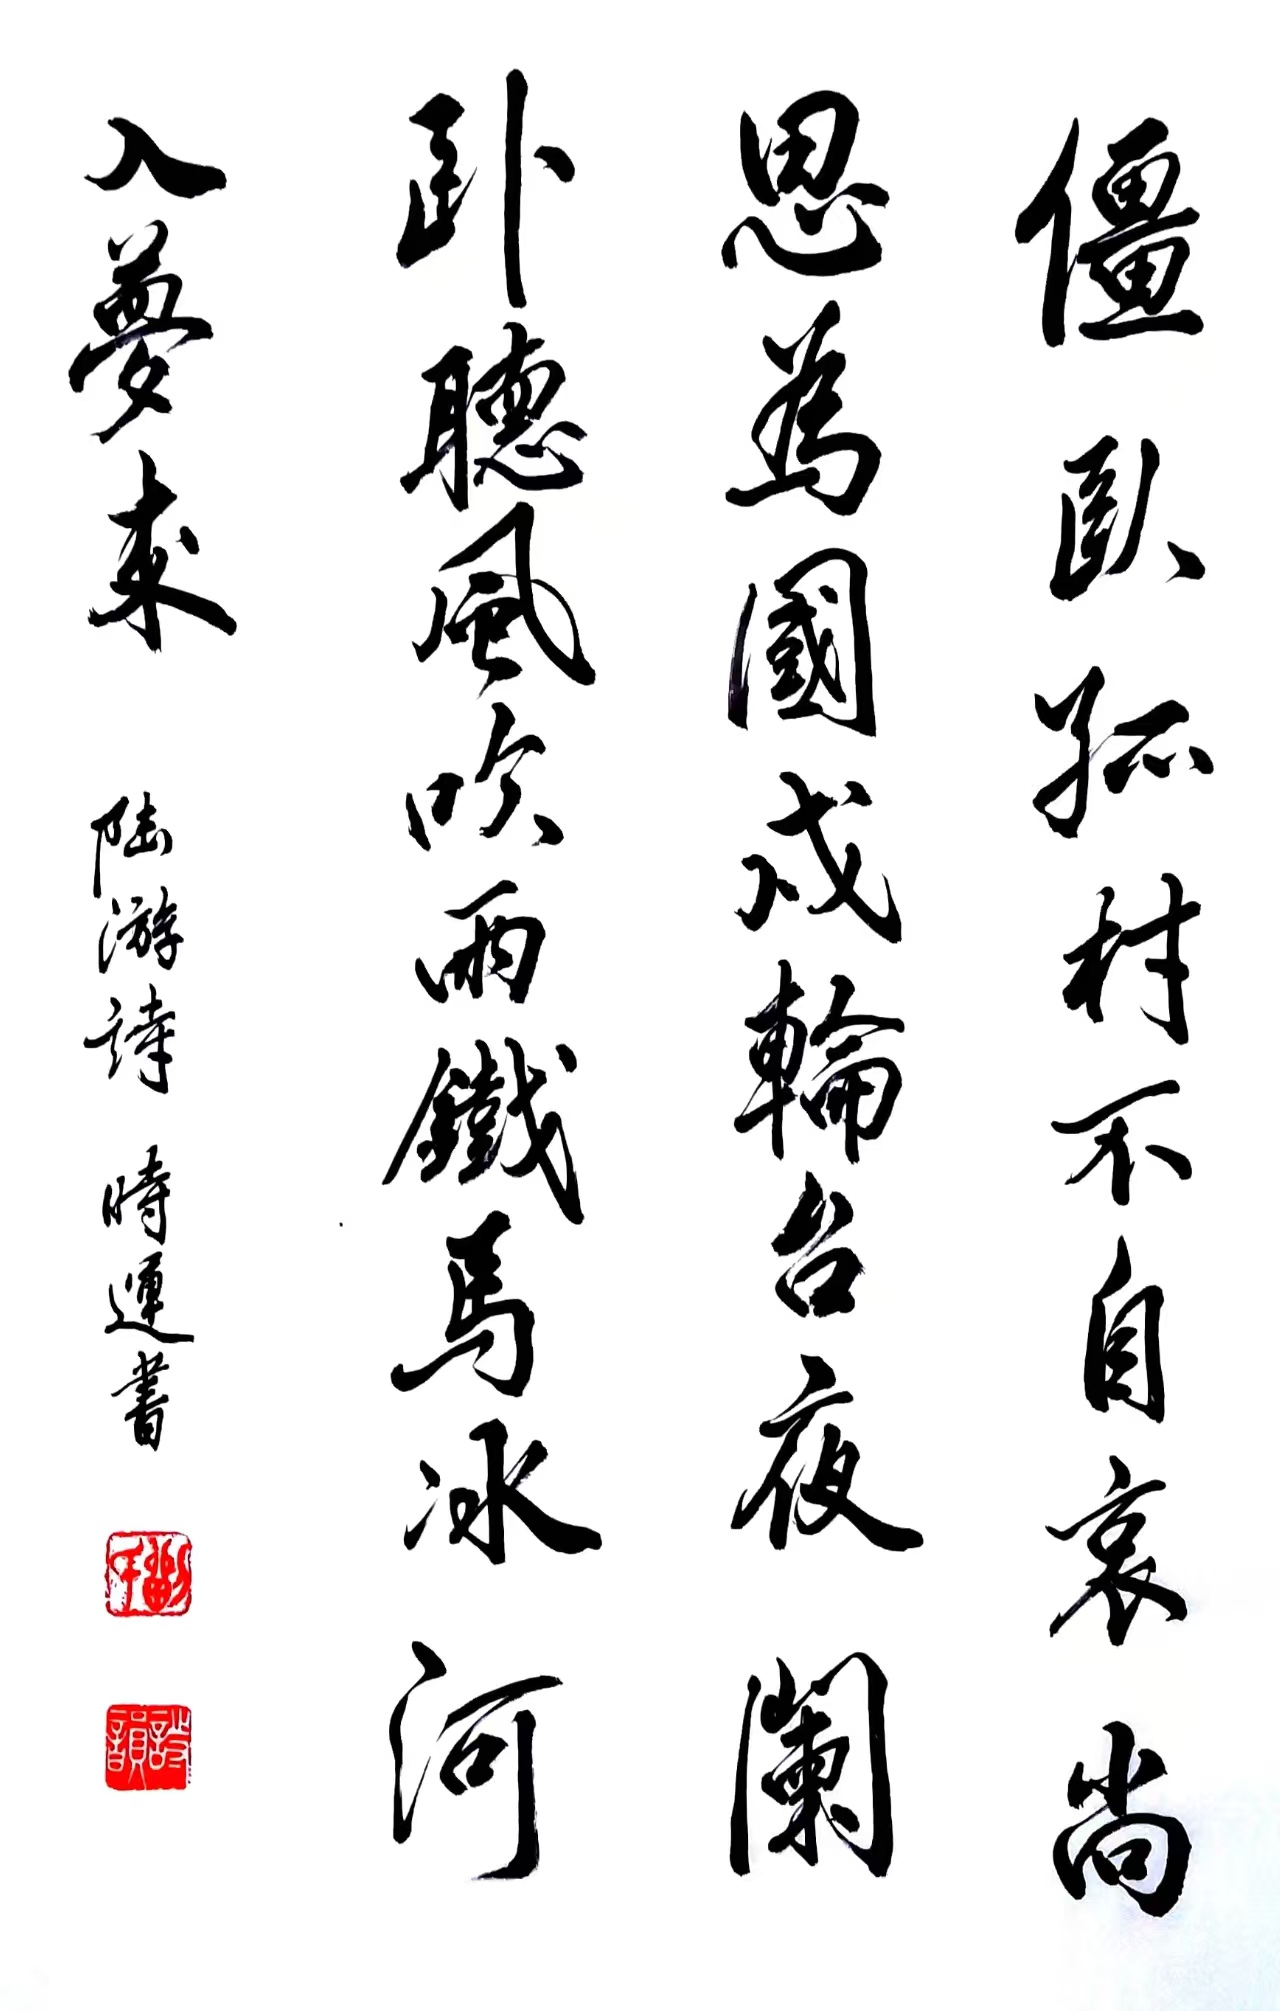 僵臥孤村不自哀尚
思為國戍輪台夜闌
卧聽風吹雨鐵馬冰河
入夢來
陆游詩 時運書